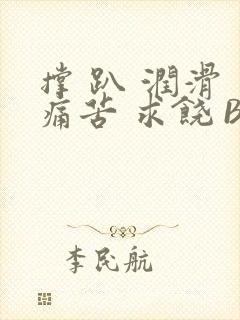 撑 趴 潤滑
痛苦 求饒 B
李民航